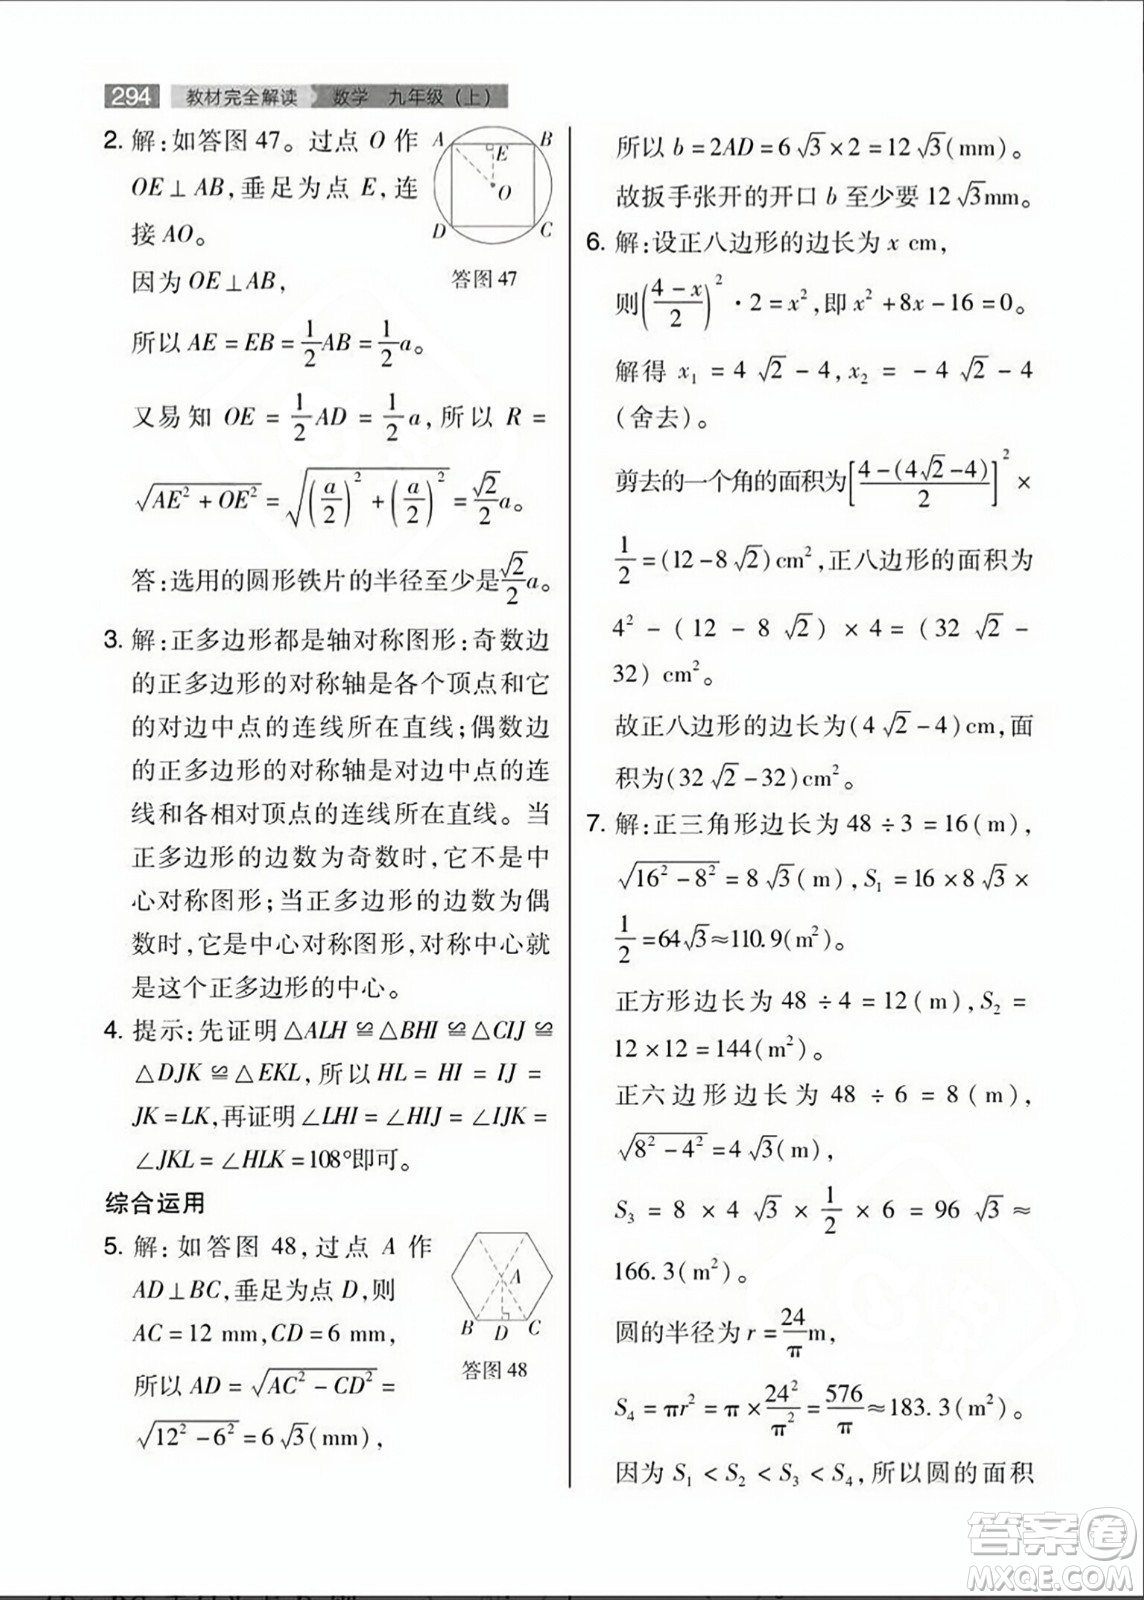 294 教材完全解读 数学 九年级（上）
2. 解:如答图 47。过点 O 作
OE⊥AB,垂足为点 E,连
接 AO。
因为 OE⊥AB,
A B E O D C
答图 47
所以 AE=EB=1/2AB=1/2a。
又易知 OE=1/2AD=1/2a,所以 R=
√(AE²+OE²)=√((a/2)²+(a/2)²)=√2/2a。
答:选用的圆形铁片的半径至少是√2/2a。
3. 解:正多边形都是轴对称图形;奇数边
的正多边形的对称轴是各个顶点和它
的对边中点的连线所在直线;偶数边
的正多边形的对称轴是对边中点的连
线和各相对顶点的连线所在直线。当
正多边形的边数为奇数时,它不是中
心对称图形;当正多边形的边数为偶
数时,它是中心对称图形,对称中心就
是这个正多边形的中心。
4. 提示:先证明△ALH≌△BHI≌△CIJ≌
△DJK≌△EKL,所以HL=HI=IJ=
JK=LK,再证明∠LHI=∠HIJ=∠IJK=
∠JKL=∠HLK=108°即可。
综合运用
5. 解:如答图 48,过点 A 作
AD⊥BC,垂足为点 D,则
AC=12 mm,CD=6 mm,
A B D C
答图 48
所以 AD=√(AC²-CD²)=
√(12²-6²)=6√3(mm),
所以 b=2AD=6√3×2=12√3(mm)。
故扳手张开的开口 b 至少要 12√3mm。
6. 解:设正八边形的边长为 x cm,
则((4-x)/2)²·2=x²,即 x²+8x-16=0。
解得 x₁=4√2-4,x₂=-4√2-4
(舍去)。
剪去的一个角的面积为[(4-(4√2-4))/2]²×
1/2=(12-8√2)cm²,正八边形的面积为
4²-(12-8√2)×4=(32√2-
32) cm²。
故正八边形的边长为(4√2-4)cm,面
积为(32√2-32)cm²。
7. 解:正三角形边长为 48÷3=16(m),
√(16²-8²)=8√3(m),S₁=16×8√3×
1/2=64√3≈110.9(m²)。
正方形边长为 48÷4=12(m),S₂=
12×12=144(m²)。
正六边形边长为 48÷6=8(m),
√(8²-4²)=4√3(m),
S₃=8×4√3×1/2×6=96√3≈
166.3(m²)。
圆的半径为 r=24/π m,
S₄=πr²=π×24²/π²=576/π≈183.3(m²)。
因为 S₁<S₂<S₃<S₄,所以圆的面积
答案卷
MXQE.COM